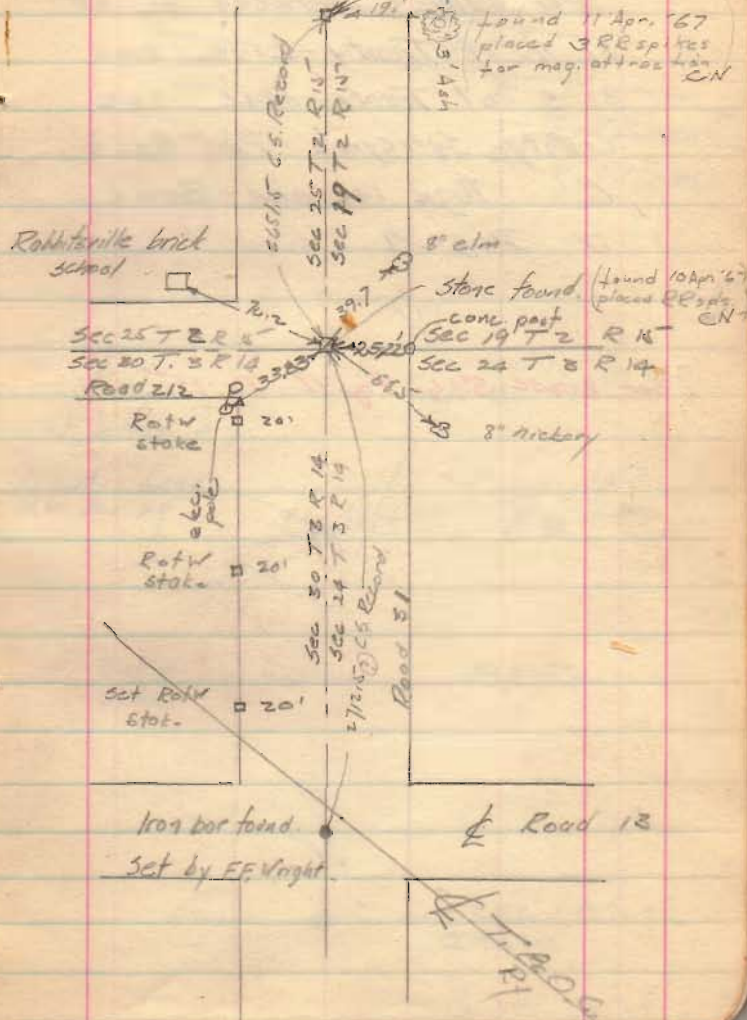 19.
found 11 Apr. '67
placed 3 RR spikes
for mag. attraction
CN
3' Ash
5651.5 C.S. Record
Sec 25 T 2 R 15
Sec 19 T 2 R 15
Robbitsville brick
school
8" elm
stone found. (found 10 Apr '67
placed RR spk.
CN
72.2
39.7
conc. post
Sec 25 T 2 R 15
25.22'
Sec 19 T 2 R 15
Sec 30 T. 3 R 14
Sec 24 T 3 R 14
33.83
66.5
Road 212
R of W
stake
20'
8" hickory
elec.
pole
R of W
stake
20'
Sec 30 T 3 R 14
Sec 24 T 3 R 14
C.S. Record
Road 31
Set R of W
stak.
20'
Iron bar found.
Set by F.F. Wright
℄ Road 13
℄